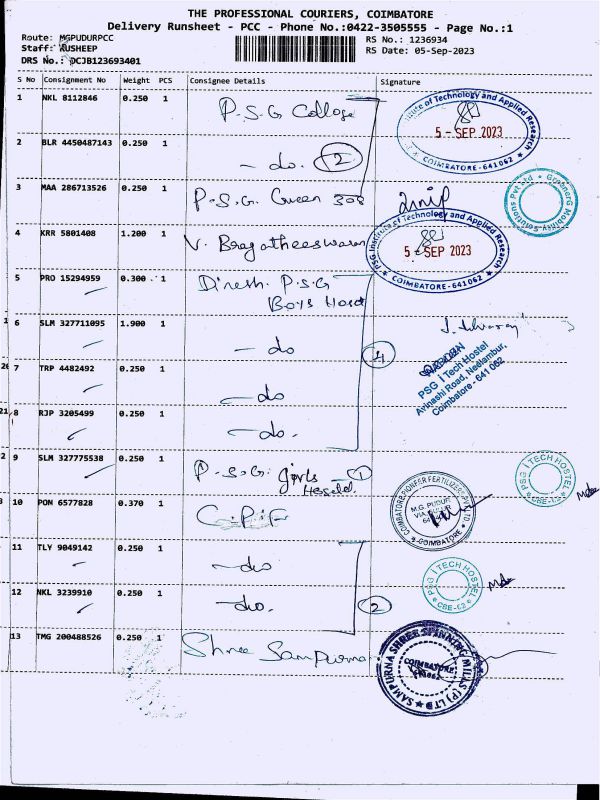 THE PROFESSIONAL COURIERS, COIMBATORE
Delivery Runsheet - PCC - Phone No.:0422-3505555 - Page No.:1
Route: MGPUDURPCC
RS No.: 1236934
Staff: KUSHEEP
RS Date: 05-Sep-2023
DRS No.: DCJB123693401
S No Consignment No Weight PCS Consignee Details Signature
1 NKL 8112846 0.250 1 P.S.G College
Institute of Technology and Applied Research
5 - SEP 2023
COIMBATORE-641062
2 BLR 4450487143 0.250 1 - do. 2
3 MAA 286713526 0.250 1 P.S.G. Queen 308
GreenerG Mobility Solutions Pvt Ltd
4 KRR 5801408 1.200 1 V. Bragatheeswaran
PSG Institute of Technology and Applied Research
5 - SEP 2023
COIMBATORE-641062
5 PRO 15294959 0.300 1 Dinesh P.S.G
Boys Host
6 SLM 327711095 1.900 1 - do
4
WARDEN
PSG I Tech Hostel
Avinashi Road, Neelambur,
Coimbatore - 641 062
7 TRP 4482492 0.250 1 - do
8 RJP 3205499 0.250 1 - do.
9 SLM 327775538 0.250 1 P.S.G. girls 1
PSG I TECH HOSTEL
CBE-62
10 PON 6577828 0.370 1 C.P.F
COIMBATORE PIONEER FERTILIZERS PVT LTD
M.G. PUDUR
COIMBATORE
11 TLY 9049142 0.250 1 - do
PSG I TECH HOSTEL
CBE-62
12 NKL 3239910 0.250 1 - do. 2
13 TMG 200488526 0.250 1 Shree Sampurna
SAMPURNA SHREE SPINNING MILLS (P) LTD
COIMBATORE